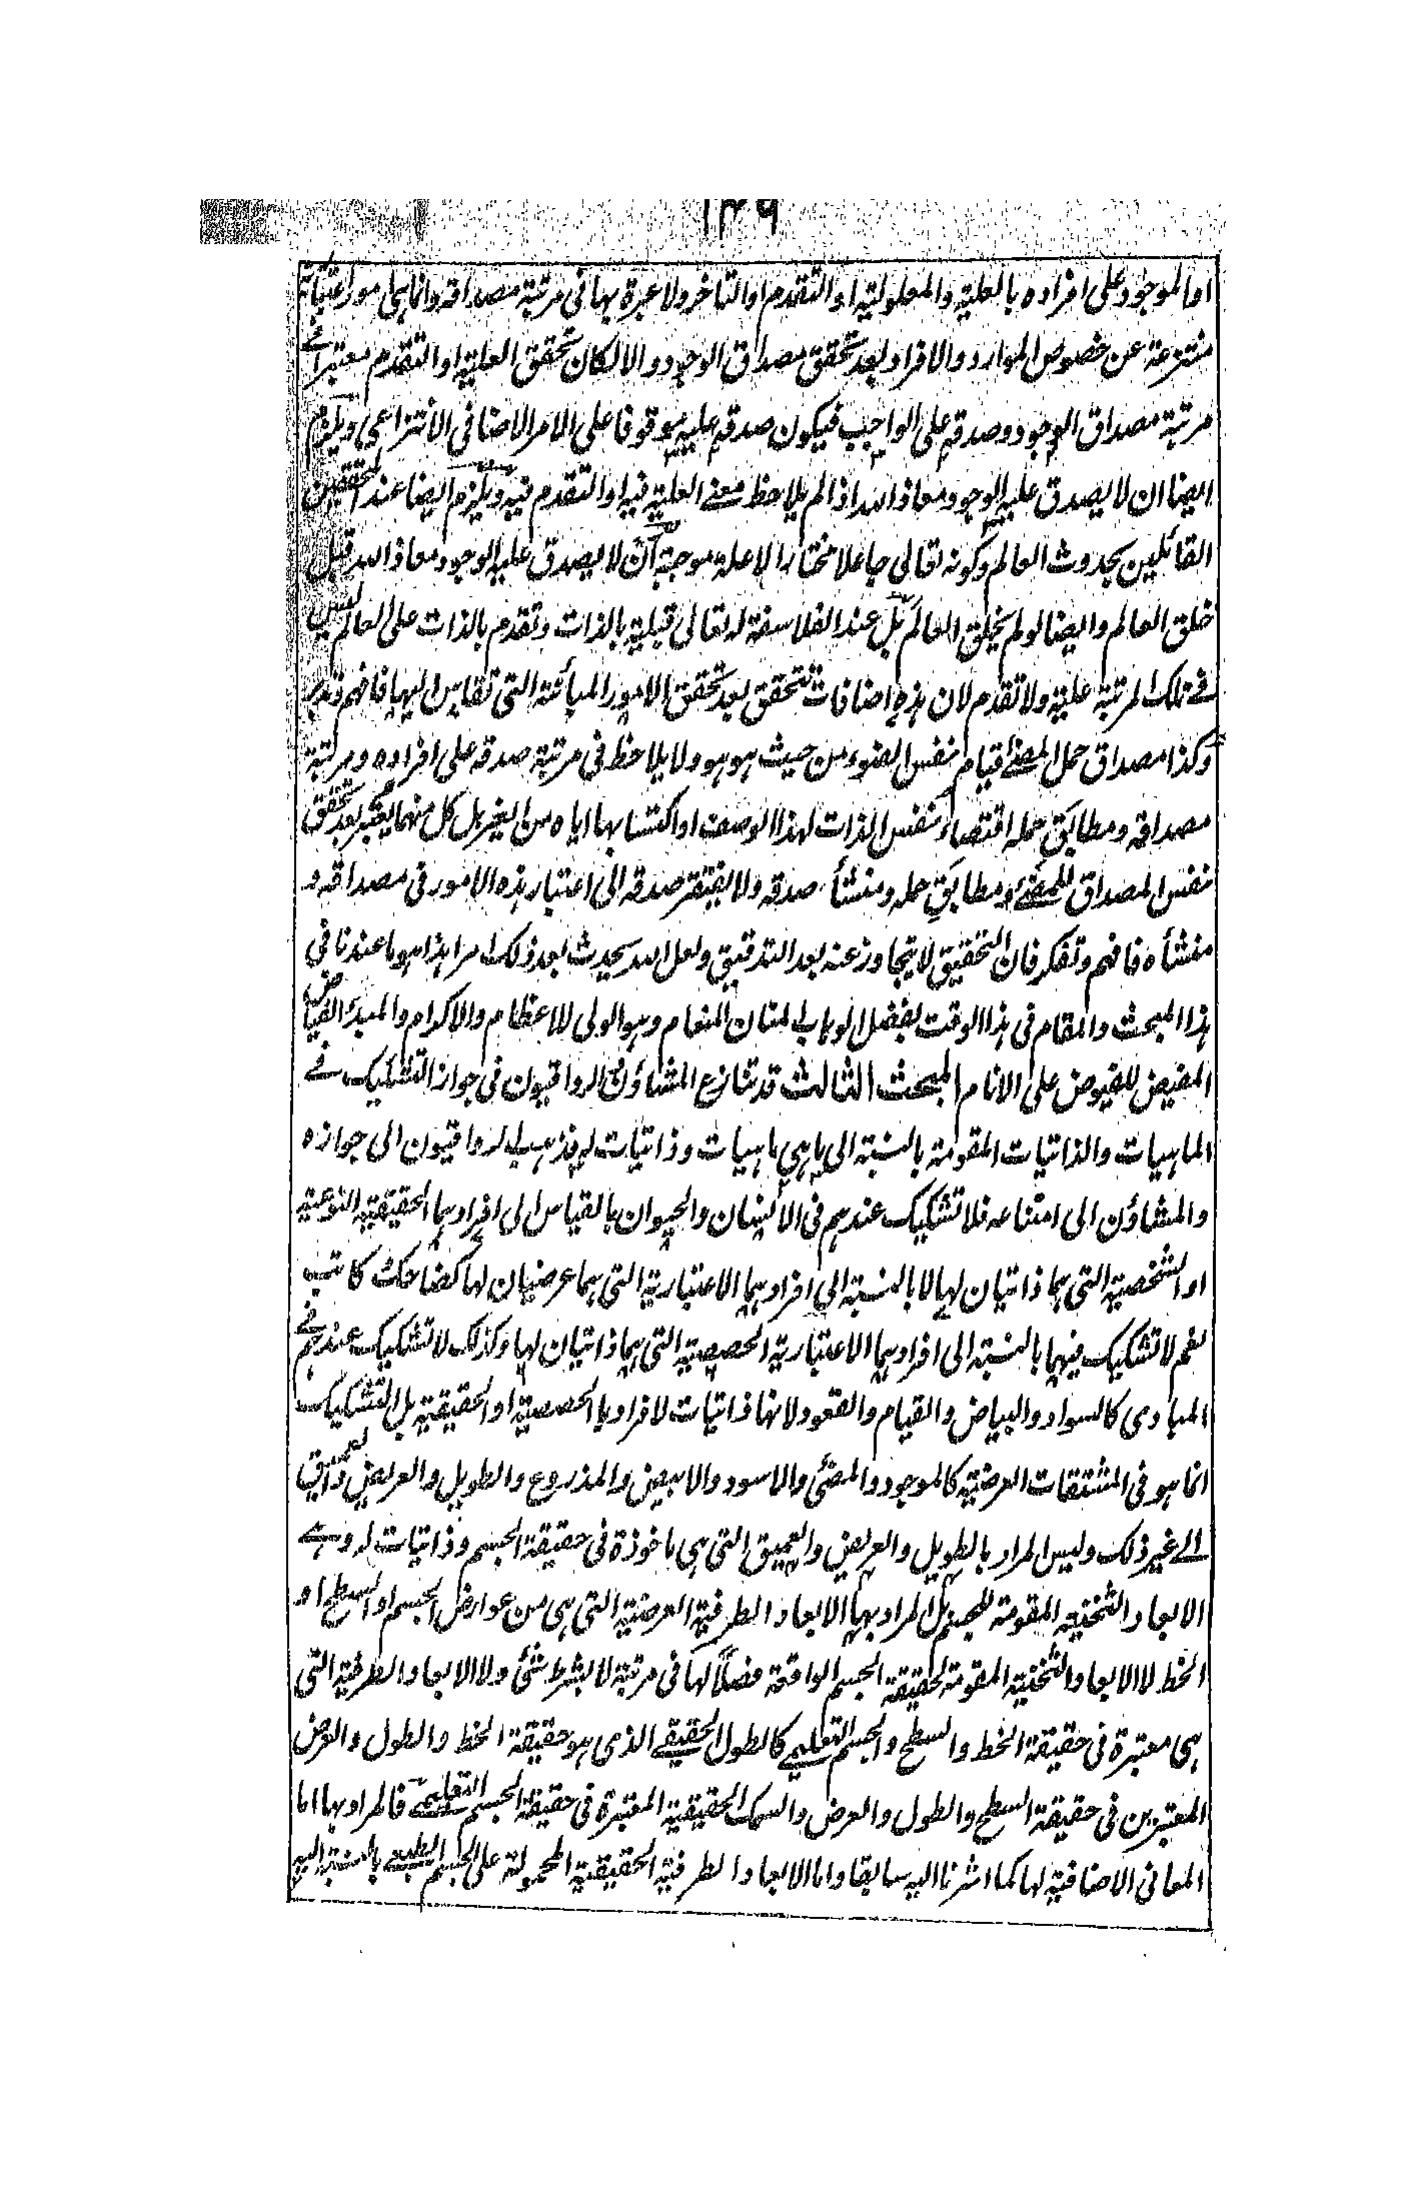 ١٣٩
او الموجود على افراده بالعلية والمعلولية او التقدم او التأخر ولا عبرة بها في مرتبة مصداقه وانما هي امور اعتبارية
منتزعة عن خصوص الموارد والافراد بعد تحقق مصداق الوجود والا لكان تحقق العلية او التقدم معتبرا في
مرتبة مصداق الوجود وصدقه على الواجب فيكون صدقه عليه موقوفا على الامر الاضافي الانتزاعي ويلزم
ايضا ان لا يصدق عليه الوجود ومعاذ الله اذا لم يلاحظ معنى العلية فيه او التقدم فيه ويلزم ايضا عند المحققين
القائلين بحدوث العالم وكونه تعالى جاعلا مختارا لا علة موجبة ان لا يصدق عليه الوجود معاذ الله قبل
خلق العالم وايضا لو لم يخلق العالم بل عند الفلاسفة له تعالى قبلية بالذات وتقدم بالذات على العالم ليس
في تلك المرتبة علية ولا تقدم لان هذه اضافات تتحقق بعد تحقق الامور المبائنة التي تقاس اليها فافهم وتدبر
وكذا مصداق حمل المضئ قيام نفس الضوء من حيث هو هو ولا يلاحظ في مرتبة صدقه على افراده ومرتبة
مصداقه ومطابق حمله اقتضاء نفس الذات لهذا الوصف او اكتسابها اياه من الغير بل كل منهما يعتبر بعد تحقق
نفس المصداق للمضئ ومطابق حمله ومنشأ صدقه ولا يفتقر صدقه الى اعتبار هذه الامور في مصداقه و
منشأه فافهم وتفكر فان التحقيق لا يتجاوز عنه بعد التدقيق ولعل الله يحدث بعد ذلك امرا هذا هو ما عندنا في
هذا المبحث والمقام في هذا الوقت بفضل الوهاب المنان المنعام وهو الولي للاعظام والاكرام والمبدأ الفياض
المفيض للفيوض على الانام المبحث الثالث قد تنازع المشاؤن والرواقيون في جواز التشكيك في
الماهيات والذاتيات المقومة بالنسبة الى ما هي ماهيات وذاتيات له فذهب الرواقيون الى جوازه
والمشاؤن الى امتناعه فلا تشكيك عندهم في الانسان والحيوان بالقياس الى افرادهما الحقيقية النوعية
او الشخصية التي هما ذاتيان لها لا بالنسبة الى افرادهما الاعتبارية التي هما عرضيان لها كضاحك كاتب
نعم لا تشكيك فيهما بالنسبة الى افرادهما الاعتبارية الحصصية التي هما ذاتيان لها وكذلك لا تشكيك عندهم في
المبادي كالسواد والبياض والقيام والقعود لانها ذاتيات لافرادها الحصصية او الحقيقية بل التشكيك
انما هو في المشتقات العرضية كالموجود والمضئ والاسود والابيض والمذروع والطويل والعريض والعميق
الى غير ذلك وليس المراد بالطويل والعريض والعميق التي هي ماخوذة في حقيقة الجسم وذاتيات له وهي
الابعاد الثخنية المقومة للجسم بل المراد بها الابعاد الطرفية العرضية التي هي من عوارض الجسم او السطح او
الخط لا الابعاد الثخنية المقومة لحقيقة الجسم الواقعة فصلا لها في مرتبة لا بشرط شئ ولا الابعاد الطرفية التي
هي معتبرة في حقيقة الخط والسطح والجسم التعليمي كالطول الحقيقي الذي هو حقيقة الخط والطول والعرض
المعتبرين في حقيقة السطح والطول والعرض والسمك الحقيقية المعتبرة في حقيقة الجسم التعليمي فالمراد بها اما
المعاني الاضافية لها كما اشرنا اليه سابقا واما الابعاد الطرفية الحقيقية المحمولة على الجسم الطبعي بالنسبة اليه